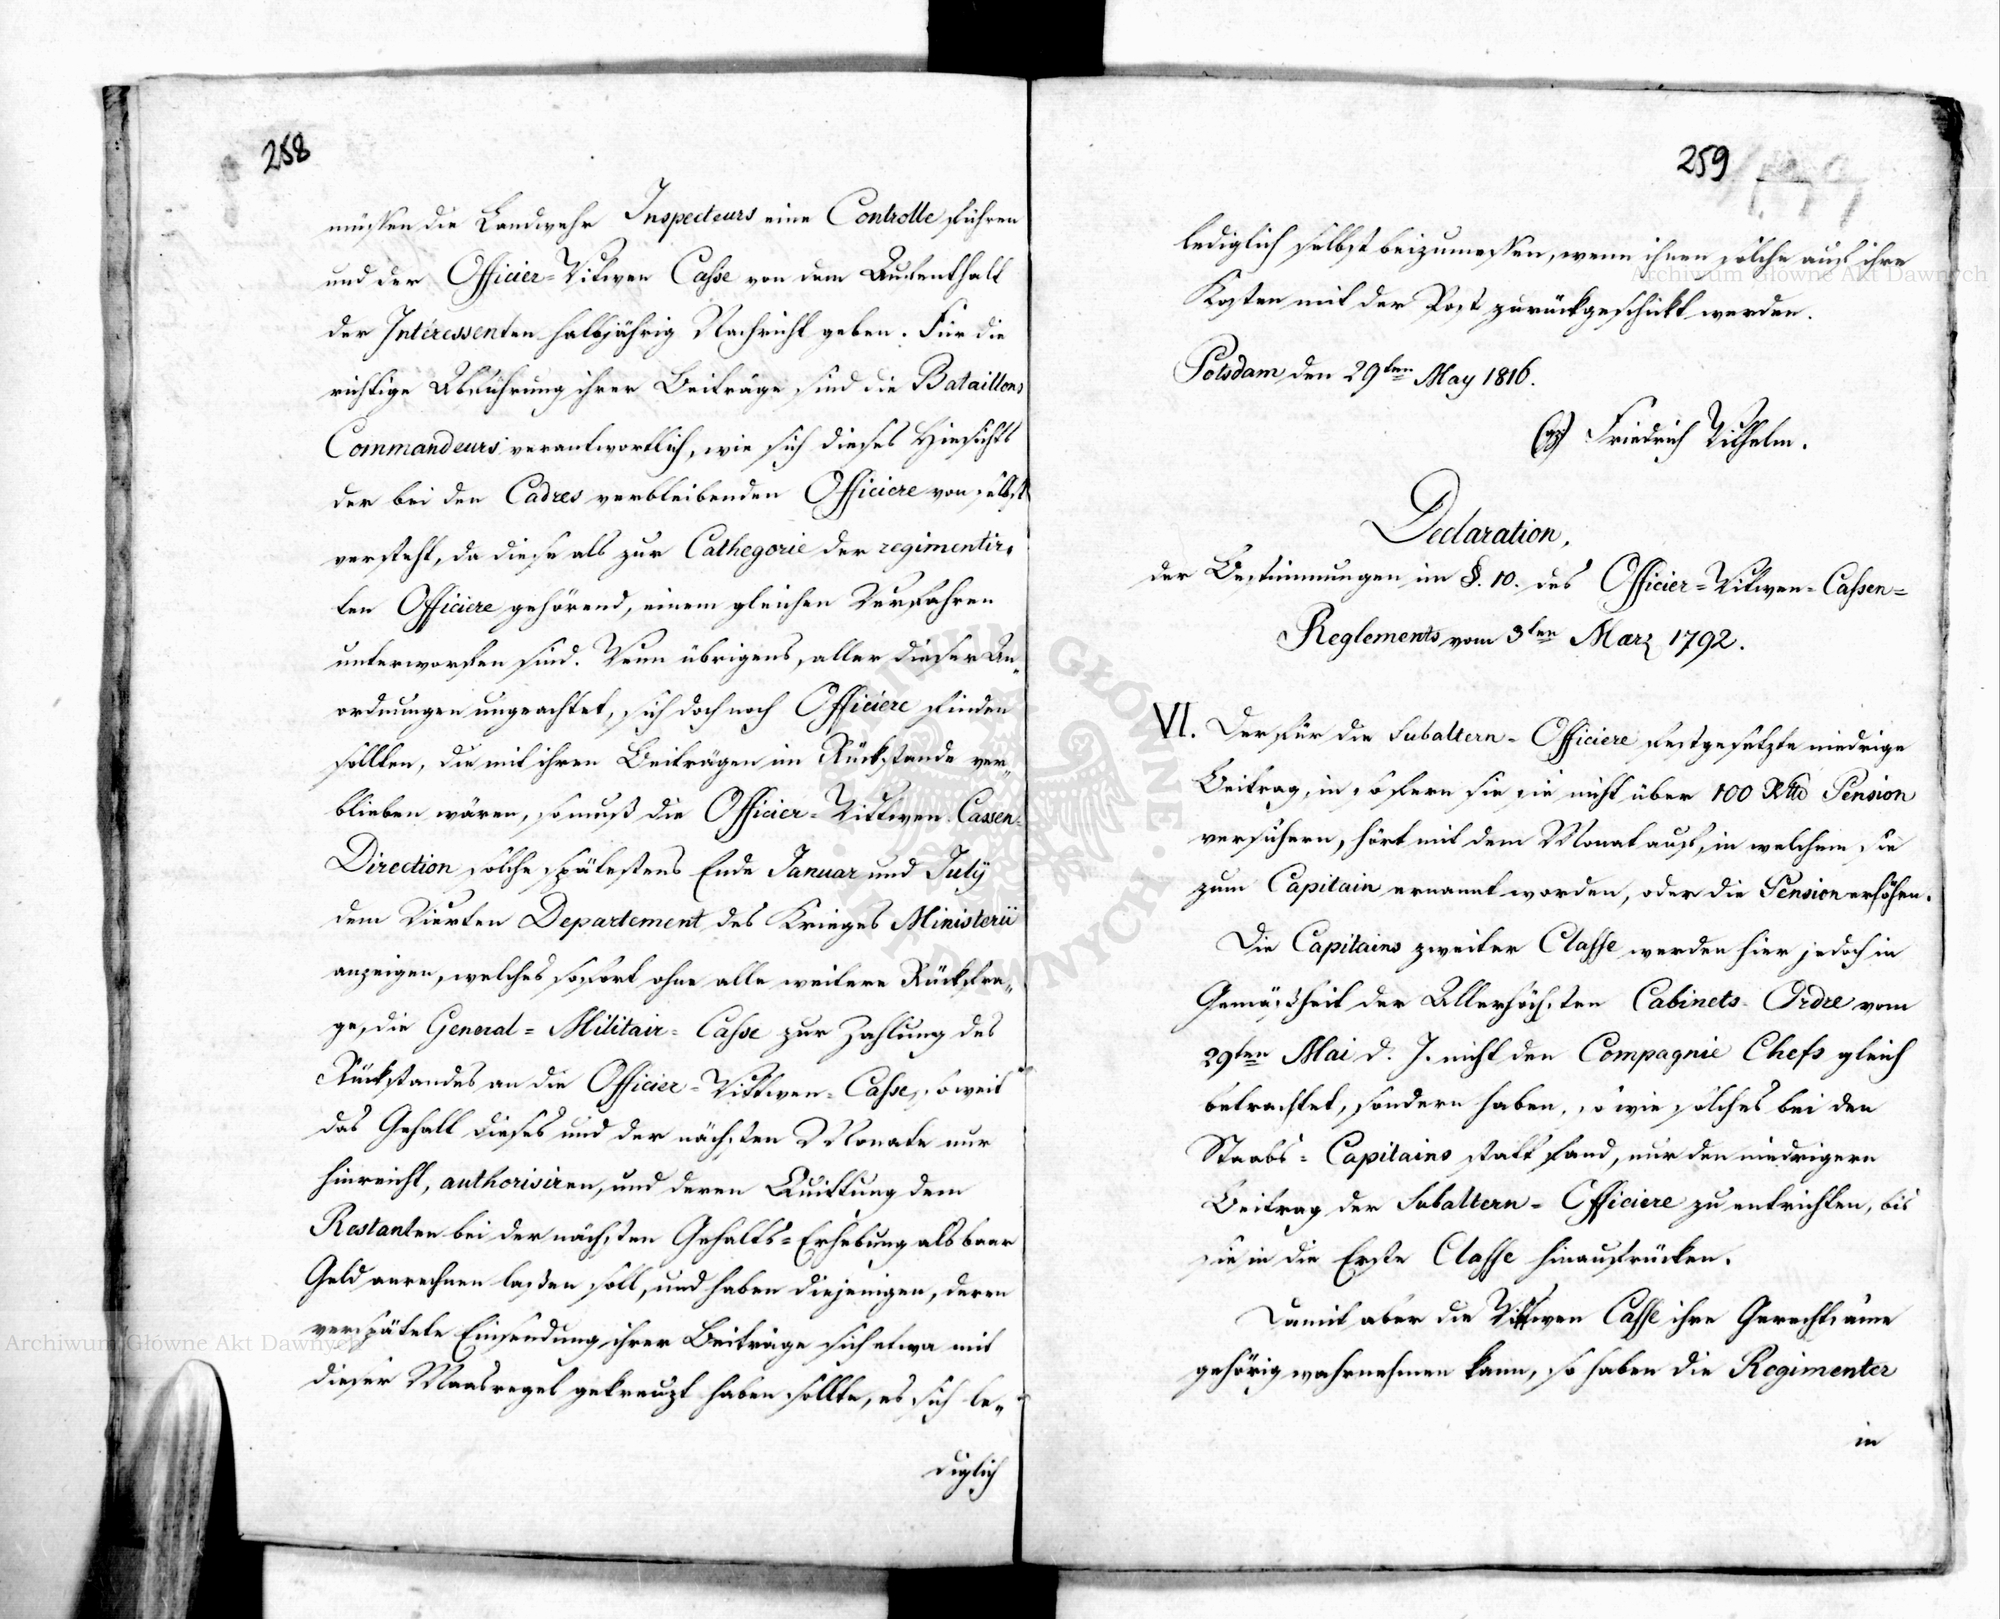 258
müssen die Landwehr Inspecteurs eine Controlle führen
und der Officier=Witwen Casse von dem Aufenthalt
der Intéressenten halbjährig Nachricht geben. Für die
richtige Abführung ihrer Beiträge sind die Bataillons
Commandeurs verantwortlich, wie sich dieses Hinsichts
der bei den Cadres verbleibenden Officiere von selbst
versteht, da diese als zur Cathegorie der regimentir=
ten Officiere gehörend, einem gleichen Verfahren
unterworfen sind. Wenn übrigens, aller dieser An=
ordnungen ungeachtet, sich doch noch Officiere finden
sollten, die mit ihren Beiträgen im Rückstande ver=
blieben wären, so muß die Officier=Wittwen Cassen=
Direction solche spätestens Ende Januar und July
dem Vierten Departement des Krieges Ministerii
anzeigen, welches sofort ohne alle weitere Rückfra=
ge, die General=Militair=Casse zur Zahlung des
Rückstandes an die Officier=Wittwen=Casse, soweit
das Gehalt dieses und der nächsten 2 Monate nur
hinreicht, authorisiren, und deren Quittung dem
Restanten bei der nächsten Gehalts=Erhebung als baar
Geld anrechnen laßen soll, und haben diejenigen, deren
verspätete Einsendung ihrer Beiträge sich etwa mit
dieser Maasregel gekreuzt haben sollte, es sich le=
diglich
259
lediglich selbst beizumessen, wenn ihnen solche auf ihre
Kosten mit der Post zurückgeschickt werden.
Potsdam den 29ten May 1816.
(gz) Friedrich Wilhelm.
Declaration,
der Bestimmungen im §. 10. des Officier=Witwen=Cassen=
Reglements vom 3ten Marz 1792.
VI. Der für die Subaltern=Officiere festgesetzte niedrige
Beitrag, in sofern sie sie nicht über 100 Rtlr Pension
versichern, hört mit dem Monat auf, in welchem sie
zum Capitain ernannt worden, oder die Pension erhöhen.
Die Capitains zweiter Classe werden hier jedoch in
Gemäßheit der Allerhöchsten Cabinets Ordre vom
29ten Mai d. J. nicht den Compagnie Chefs gleich
betrachtet, sondern haben, so wie solches bei den
Staabs=Capitains statt fand, nur den niedrigern
Beitrag der Subaltern=Officiere zu entrichten, bis
sie in die Erste Classe hinaufrücken.
Damit aber die Wittwen Casse ihre Gerechtsame
gehörig wahrnehmen kann, so haben die Regimenter
in
Archiwum Główne Akt Dawnych
Archiwum Główne Akt Dawnych